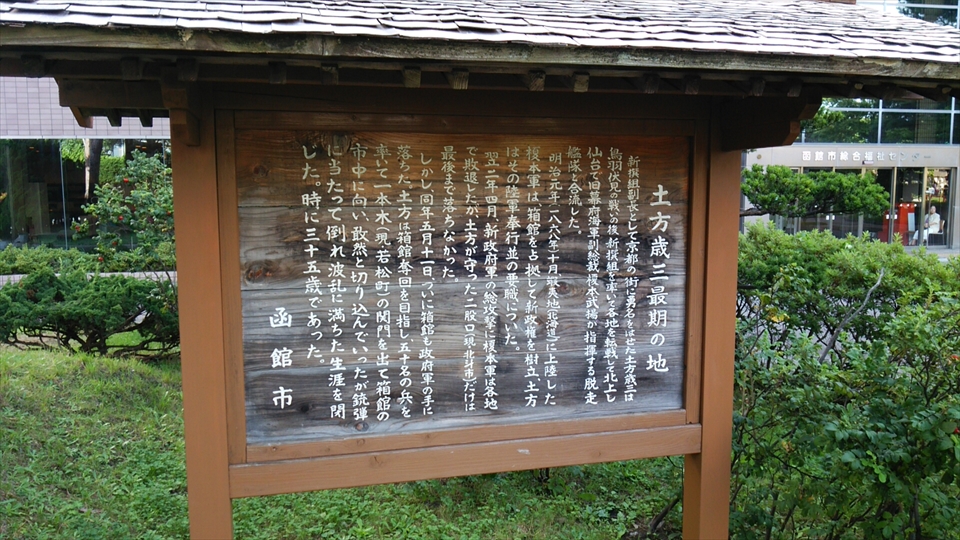 土方歳三最期の地
新撰組副長として京都の街に勇名をはせた土方歳三は
鳥羽伏見の戦いの後新撰組を率いて各地を転戦して北上し
仙台で旧幕府海軍副総裁榎本武揚が指揮する脱走
艦隊と合流した。
明治元年(一八六八年)十月蝦夷地(北海道)に上陸した
榎本軍は、箱館を占拠して新政権を樹立、土方
はその陸軍奉行並の要職についた。
翌二年四月、新政府軍の総攻撃に榎本軍は各地
で敗退したが、土方が守った二股口(現・北斗市)だけは
最後まで落ちなかった。
しかし、同年五月十一日、ついに箱館も政府軍の手に
落ちた。土方は箱館奪回を目指し、五十名の兵を
率いて一本木(現・若松町)の関門を出て箱館の
市中に向い、敢然と切り込んでいったが、銃弾
に当たって倒れ、波乱に満ちた生涯を閉
じた。時に三十五歳であった。
函館市
函館市総合福祉センター